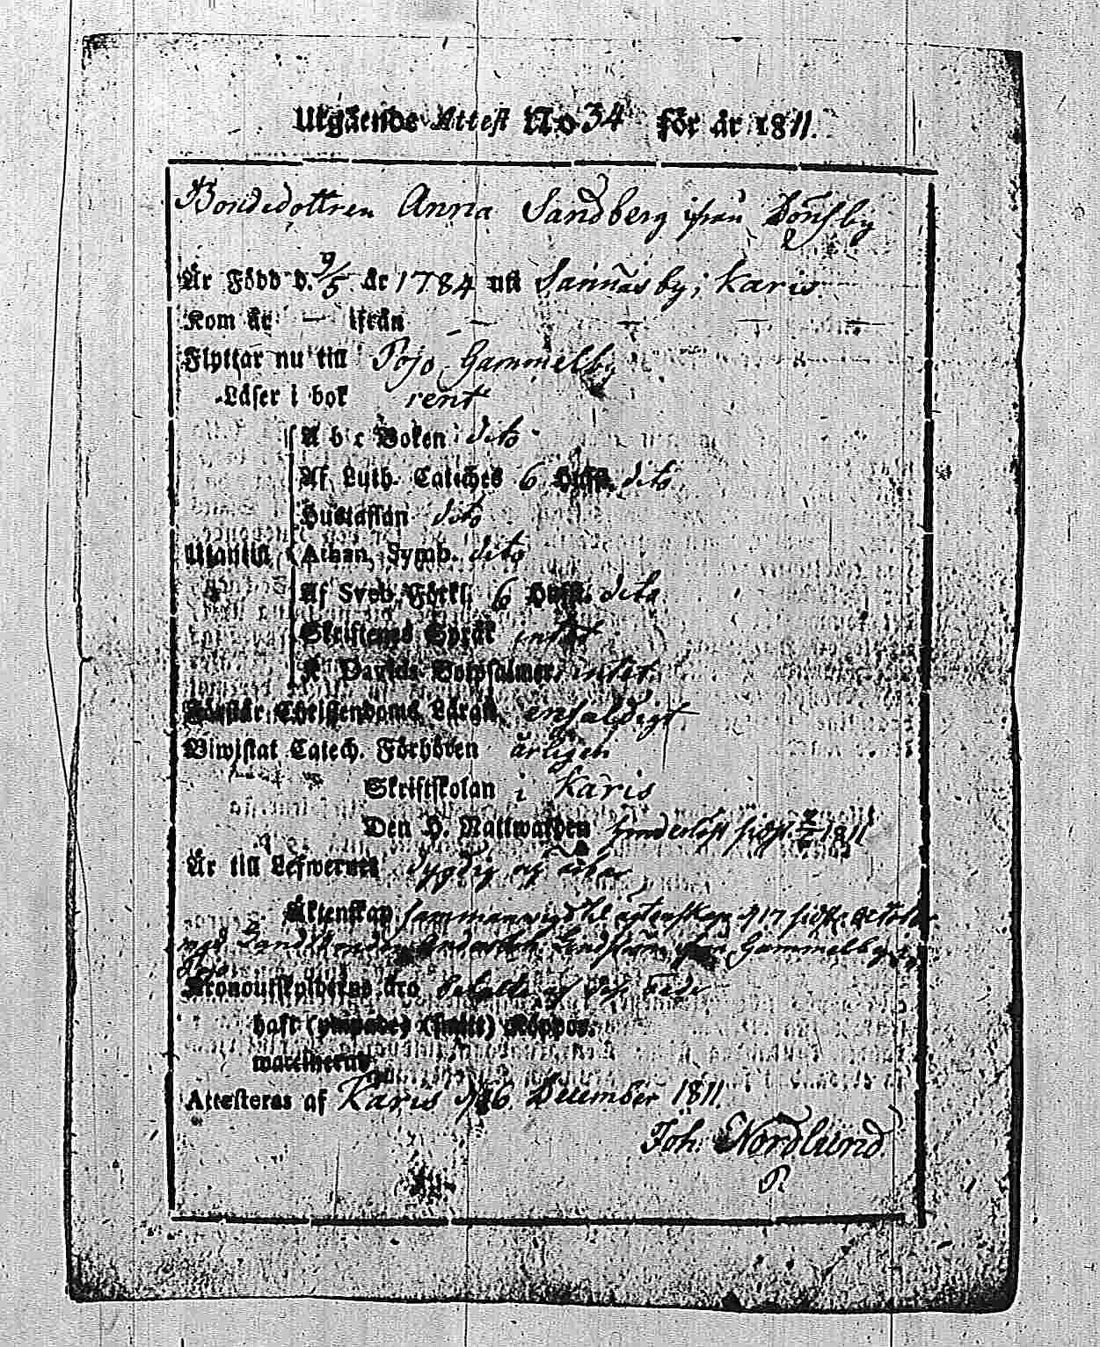 Utgående Attest No 34 för år 1811.
Bondedottren Anna Sandberg ifrån
Är Född d. 9/5 år 1784 uti Sannäs by i Karis
Kom år — ifrån —
Flyttar nu till Pojo, Gammelby
Läser i bok rent
A b c Boken dito
Af Luth. Catches 6 Hufst. dito
Hustaflan dito
Utantill Athan. Symb. dito
Af Sveb. Förkl. 6 Hufst. dito
Skriftenes Språk intet
K. Davids Botpsalmer intet
Förstår Christendoms Läran enfaldigt
Biwistat Catech. Förhören årligen
Skriftskolan i Karis
Den H. Nattwarden sidst 1811
Är till Lefwernet dygdig och
Äktenskap sammanvigd til äktenskap d 17 sidstl.
med Lindström från Gammelby
Pojo
Kronoutskylderne äro
haft (ympade) Koppor.
Attesteras af Karis d. 16 December 1811.
Joh. Nordlund
P.